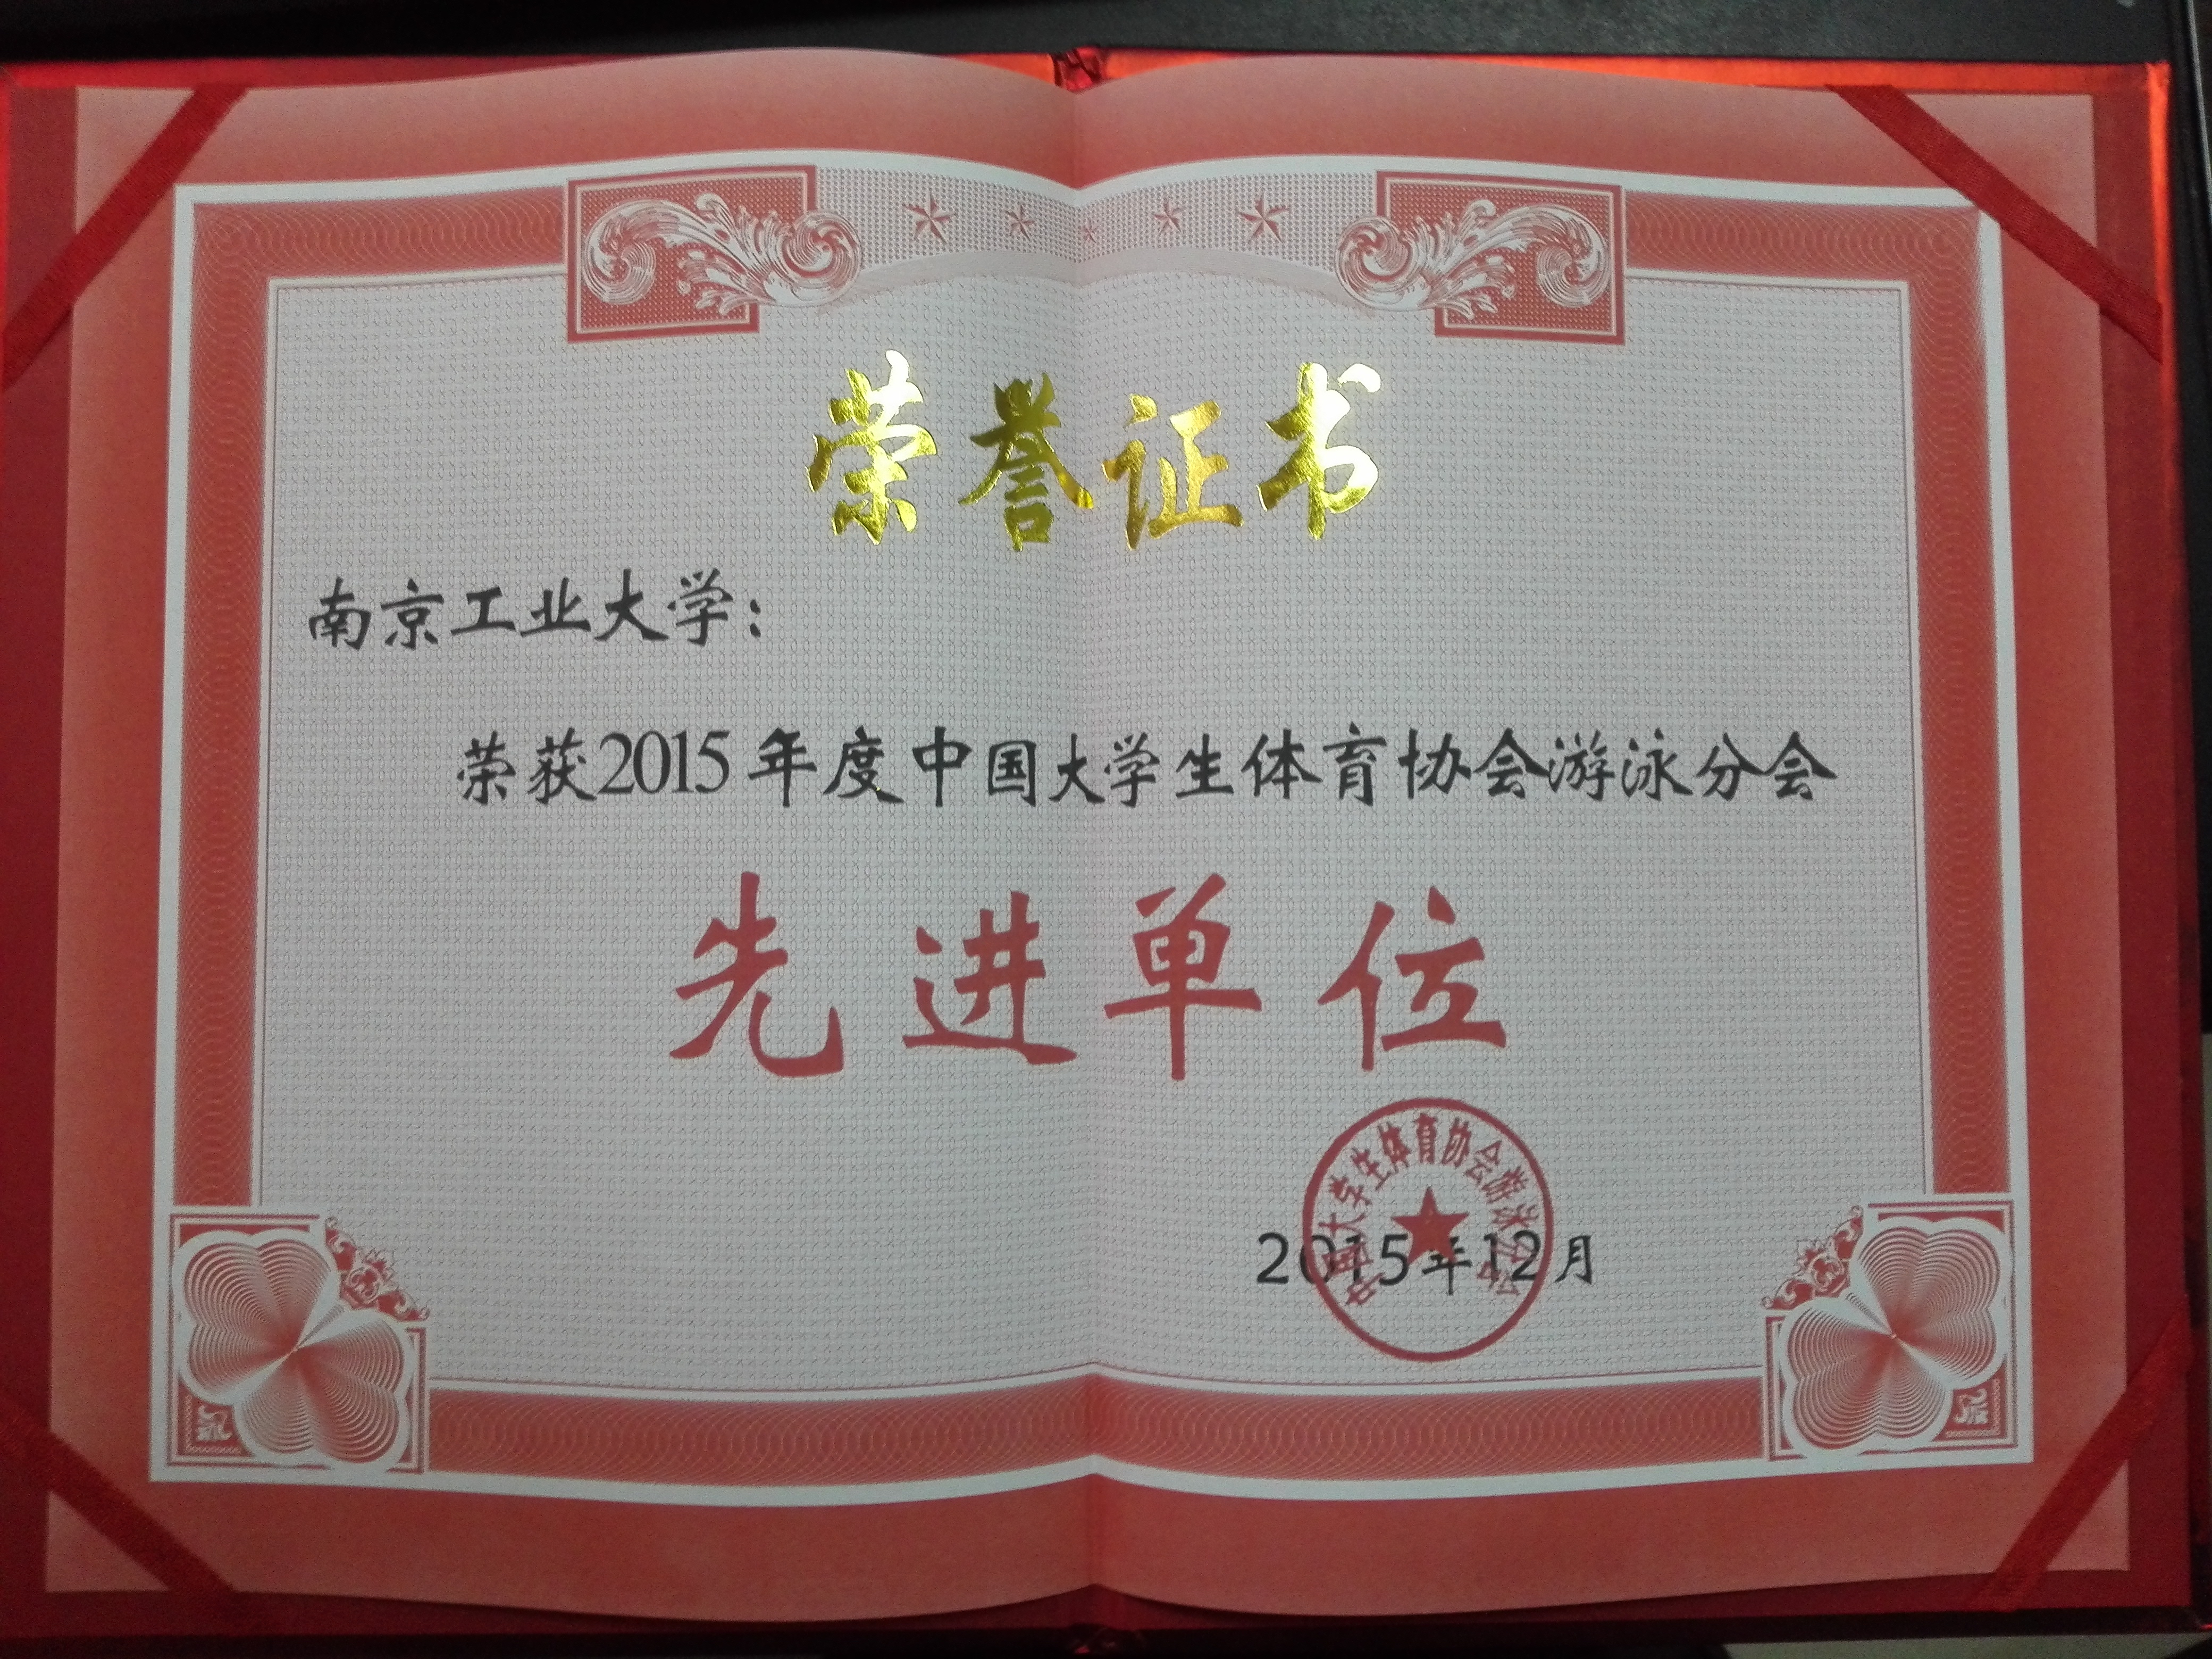 荣誉证书
南京工业大学：
荣获2015年度中国大学生体育协会游泳分会
先进单位
中国大学生体育协会游泳分会
2015年12月